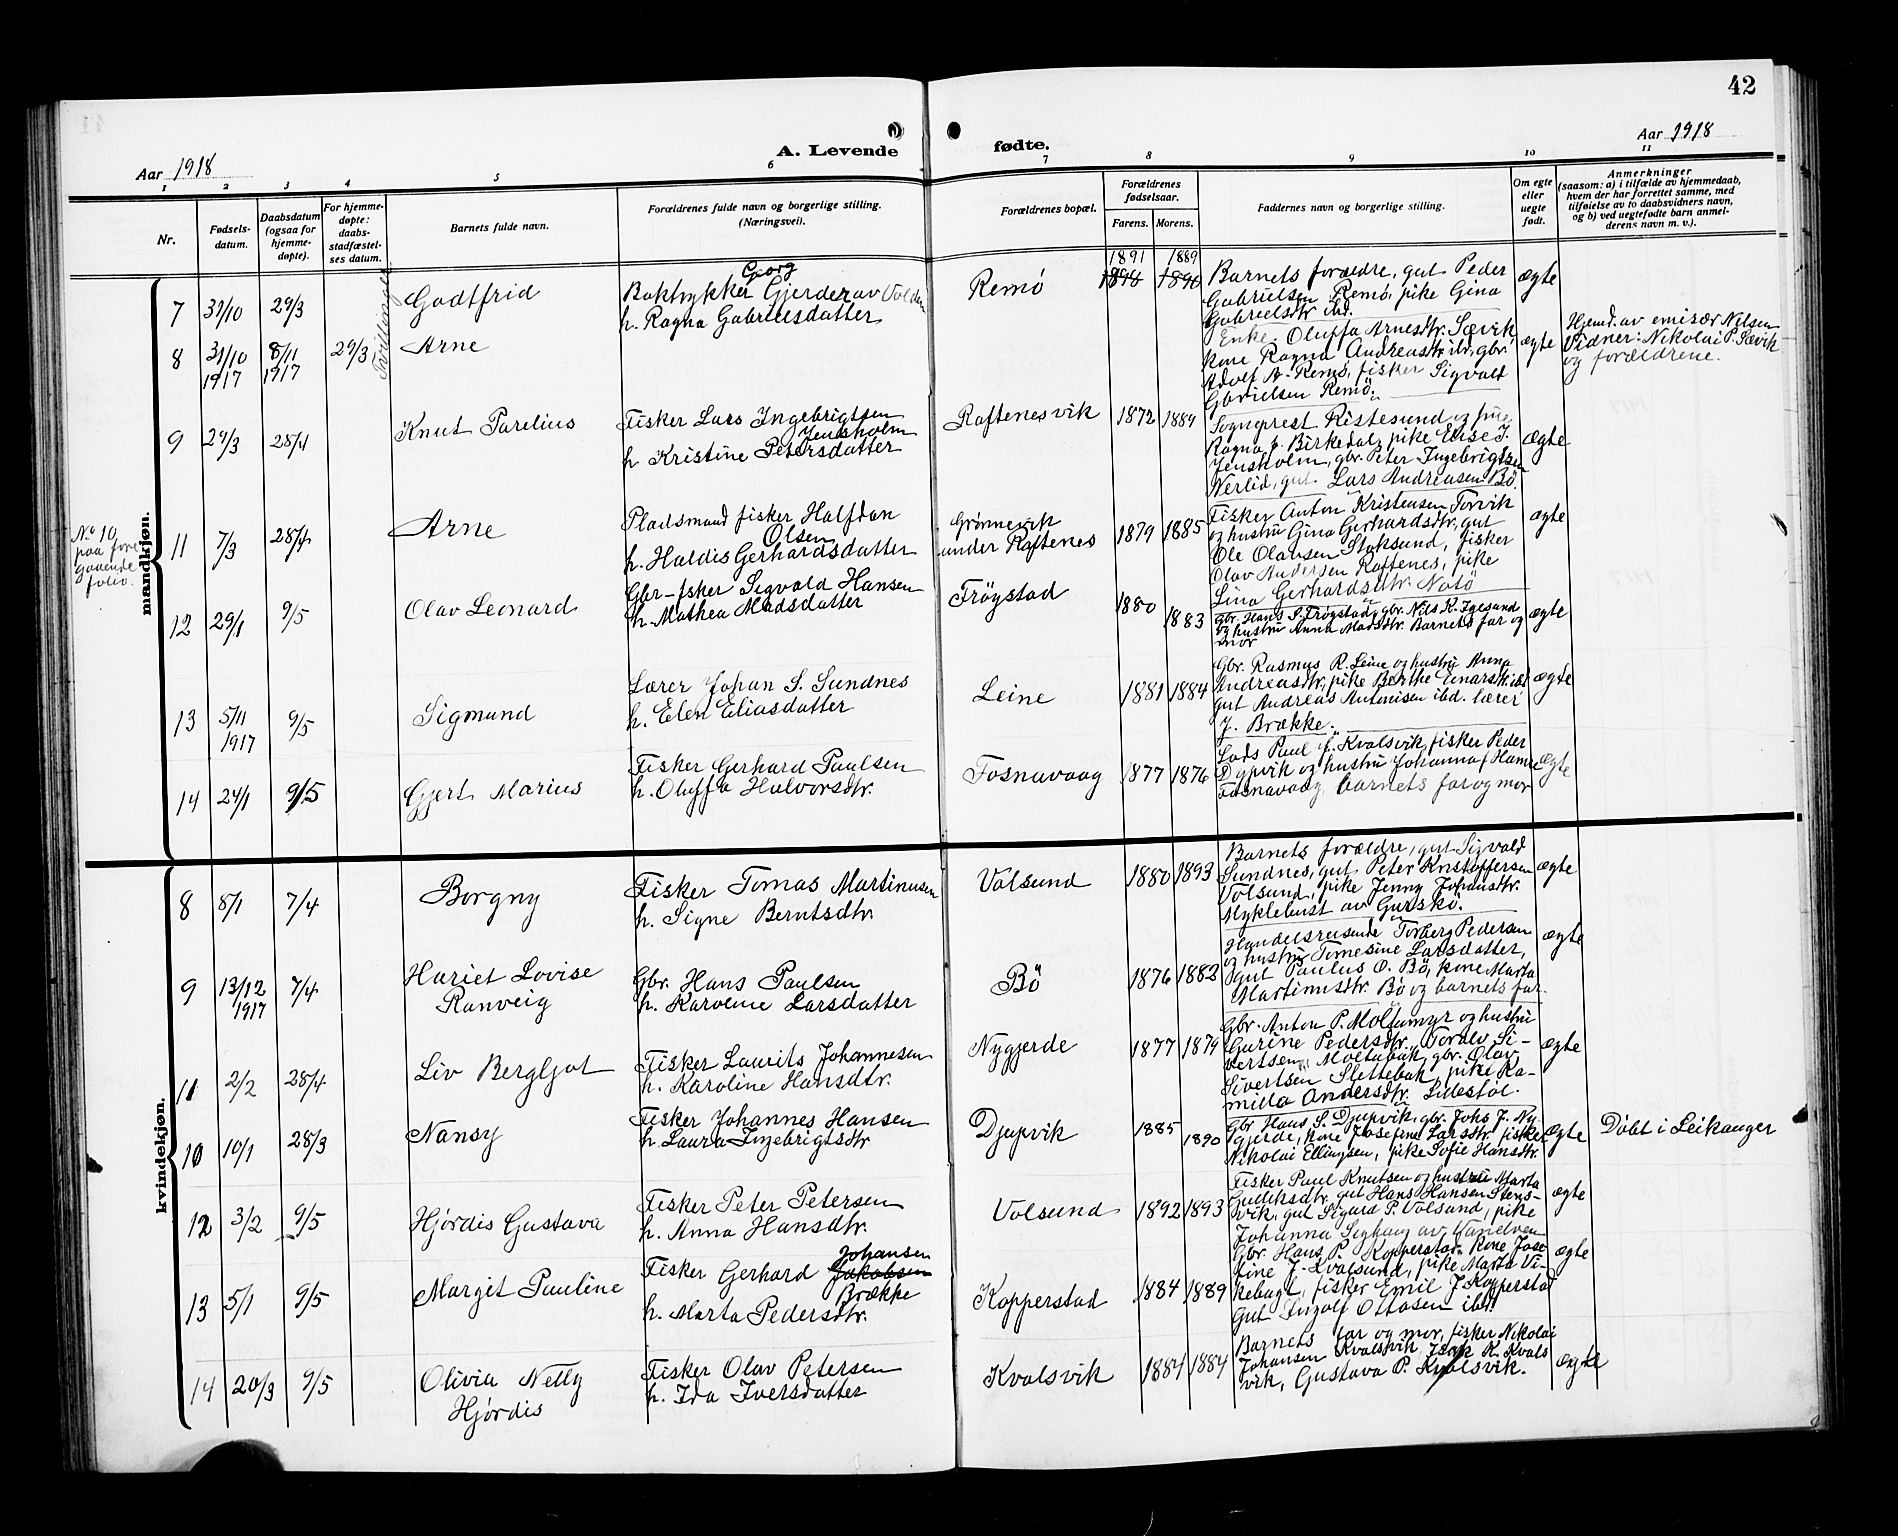 42
Aar 1918
A. Levende
fødte.
Aar 1918
1 2 3 4 5 6 7 8 9 10 11
Nr.
Fødsels-
datum.
Daabsdatum
(ogsaa for
hjemme-
døpte).
For hjemme-
døpte:
daabs-
stadfæstel-
ses datum.
Barnets fulde navn.
Forældrenes fulde navn og borgerlige stilling.
(Næringsvei).
Forældrenes bopæl.
Forældrenes
fødselsaar.
Farens. Morens.
Faddernes navn og borgerlige stilling.
Om egte
eller
uegte
født.
Anmerkninger
(saasom: a) i tilfælde av hjemmedaab,
hvem der har forrettet samme, med
tilføielse av to daabsvidners navn,
og b) ved uegtefødte barn anmel-
derens navn m. v.).
mandkjøn.
7 31/10 29/3
Tvillinger
Godtfrid
Georg
Baktrykker Gjerder av Volden
h. Ragna Gabrielsdatter
Remø
1891 1889
1890
Barnets forældre, gut Peder
Gabrielsen Remø, pike Gina
Gabrielsdtr. ibd.
ægte
8 31/10 1917 8/11 1917 29/3
Arne
Enke Oluffa Arnesdtr. Sævik
kone Ragna Andreasdtr. ibd, gbr.
Adolf A. Remø, fisker Sigvald
Gbrielsen Remø.
ægte
Hjemd. av emisær Nilsen
Vidner: Nikolai P. Sævik
og forældrene.
9 27/3 28/4
Knut Parelius
Fisker Lars Ingebrigtsen
Jensholm
h. Kristine Petersdatter
Raftenesvik
1872 1884
Sogneprest Ristesund og frue
Ragna f. Birkedal, pike Elise J.
Jensholm, gbr. Peter Ingebrigtsen
Nerlid, gut Lars Andreasen Bö.
ægte
No 10
paa fore
gaaende
folio.
11 7/3 28/4
Arne
Pladsmand fisker Halfdan
Olsen
h. Haldis Gerhardsdatter
Grønnevik
under Raftenes
1879 1885
Fisker Anton Kristensen Torvik
og hustru Gina Gerhardsdtr, gut
Ole Olavsen Stoksund, fisker
Olav Andersen Raftenes, pike
Lina Gerhardsdtr. Notö
ægte
12 29/1 9/5
Olav Leonard
Gbr-fsker Sigvald Hansen
h. Mathea Madsdatter
Frøystad
1880 1883
gbr. Hans S. Frøystad, gbr. Nils K. Igesund
og hustru Anna Madsdtr. Barnets far og
mor
ægte
13 5/11 1917 9/5
Sigmund
Lærer Johan S. Sundnes
h. Elen Eliasdatter
Leine
1881 1884
Gbr. Rasmus R. Leine og hustru Anna
Andreasdtr, pike Berthe Einarsk ibd
gut Andreas Antonisen ibd. lærer
J. Brække.
ægte
14 24/1 9/5
Gjert Marius
Fisker Gerhard Paulsen
h. Oluffa Halvorsdtr.
Fosnavaag
1877 1876
Lods Paul J. Kvalsvik, fisker Peder
Djupvik og hustru Johanna f Hamre
Fosnavaag, barnets far og mor
ægte
kvindekjøn.
8 8/1 7/4
Borgny
Fisker Tomas Martinusen
h. Signe Berntsdtr.
Volsund
1880 1893
Barnets forældre, gut Sigvald
Sundnes, gut Peter Kristoffersen
Volsund, pike Jenny Johansdtr.
Myklebust av Gurskø.
ægte
9 13/12 1917 7/4
Hariet Lovise
Ranveig
Gbr. Hans Paulsen
h. Karoline Larsdatter
Bö
1876 1882
Handelsreisende Torberg Pedersen
og hustru Tomesine Larsdatter,
gut Paulus O. Bö, kone Marta
Martinusdtr. Bö og barnets far.
ægte
11 2/2 28/4
Liv Bergljot
Fisker Laurits Johannesen
h. Karoline Hansdtr.
Nygjerde
1877 1879
Gbr. Anton P. Moltumyr og hustru
Gurine Pedersdtr. Toralv Si-
vertsen Moltubak, gbr. Olav
Sivertsen Slettebak, pike Ka-
milla Andersdtr. Lillestøl.
ægte
10 10/1 28/3
Nansy
Fisker Johannes Hansen
h. Laura Ingebrigtsdtr
Djupvik
1885 1890
Gbr Hans S. Djupvik, gbr. Johs J. Ny-
gjerde, kone Josefine Larsdtr. fisker
Nikolai Ellingsen, pike Sofie Hansdtr.
ægte
Döbt i Leikanger
12 3/2 9/5
Hjørdis Gustava
Fisker Peter Petersen
h. Anna Hansdtr.
Volsund
1892 1893
Fisker Paul Knutsen og hustru Marta
Gudiksdtr. gut Hans Hansen Stens-
vik, gut Sigurd P. Volsund, pike
Johanna Sighaug av Vanelven
ægte
13 5/1 9/5
Margit Pauline
Johansen
Fisker Gerhard Jakobsen
Brække
h. Marta Pedersdtr.
Kopperstad
1884 1889
Gbr. Hans P. Kopperstad, kone Jose
fine J. Kvalsund, pike Marta Vi-
kebagt, fisker Emil J Kopperstad
Gut Ingolf Ottosen ibd.
ægte
14 20/3 9/5
Olivia Nelly
Hjørdis
Fisker Olav Petersen
h. Ida Iversdatter
Kvalsvik
1884 1884
Barnets far og mor, fisker Nikolai
Johansen Kvalsvik, K. Kvals
vik, Gustava P. Kvalsvik.
ægte